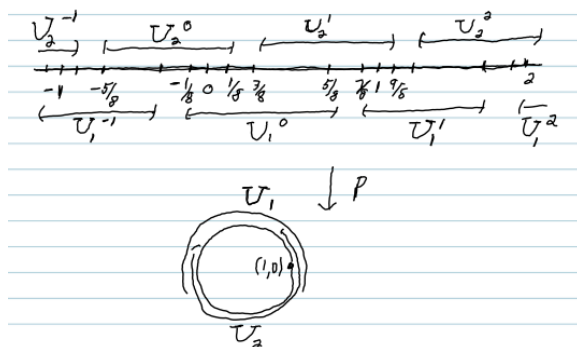 U₂⁻¹ U₂⁰ U₂¹ U₂²
-1 -5/8 -1/8 0 1/8 3/8 5/8 7/8 1 9/8 2
U₁⁻¹ U₁⁰ U₁¹ U₁²
P
U₁
(1,0)
U₂